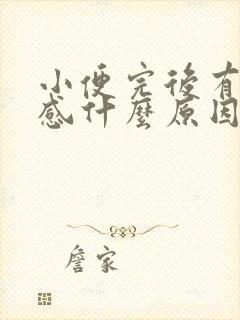 小便完後有
感什麼原因
詹家